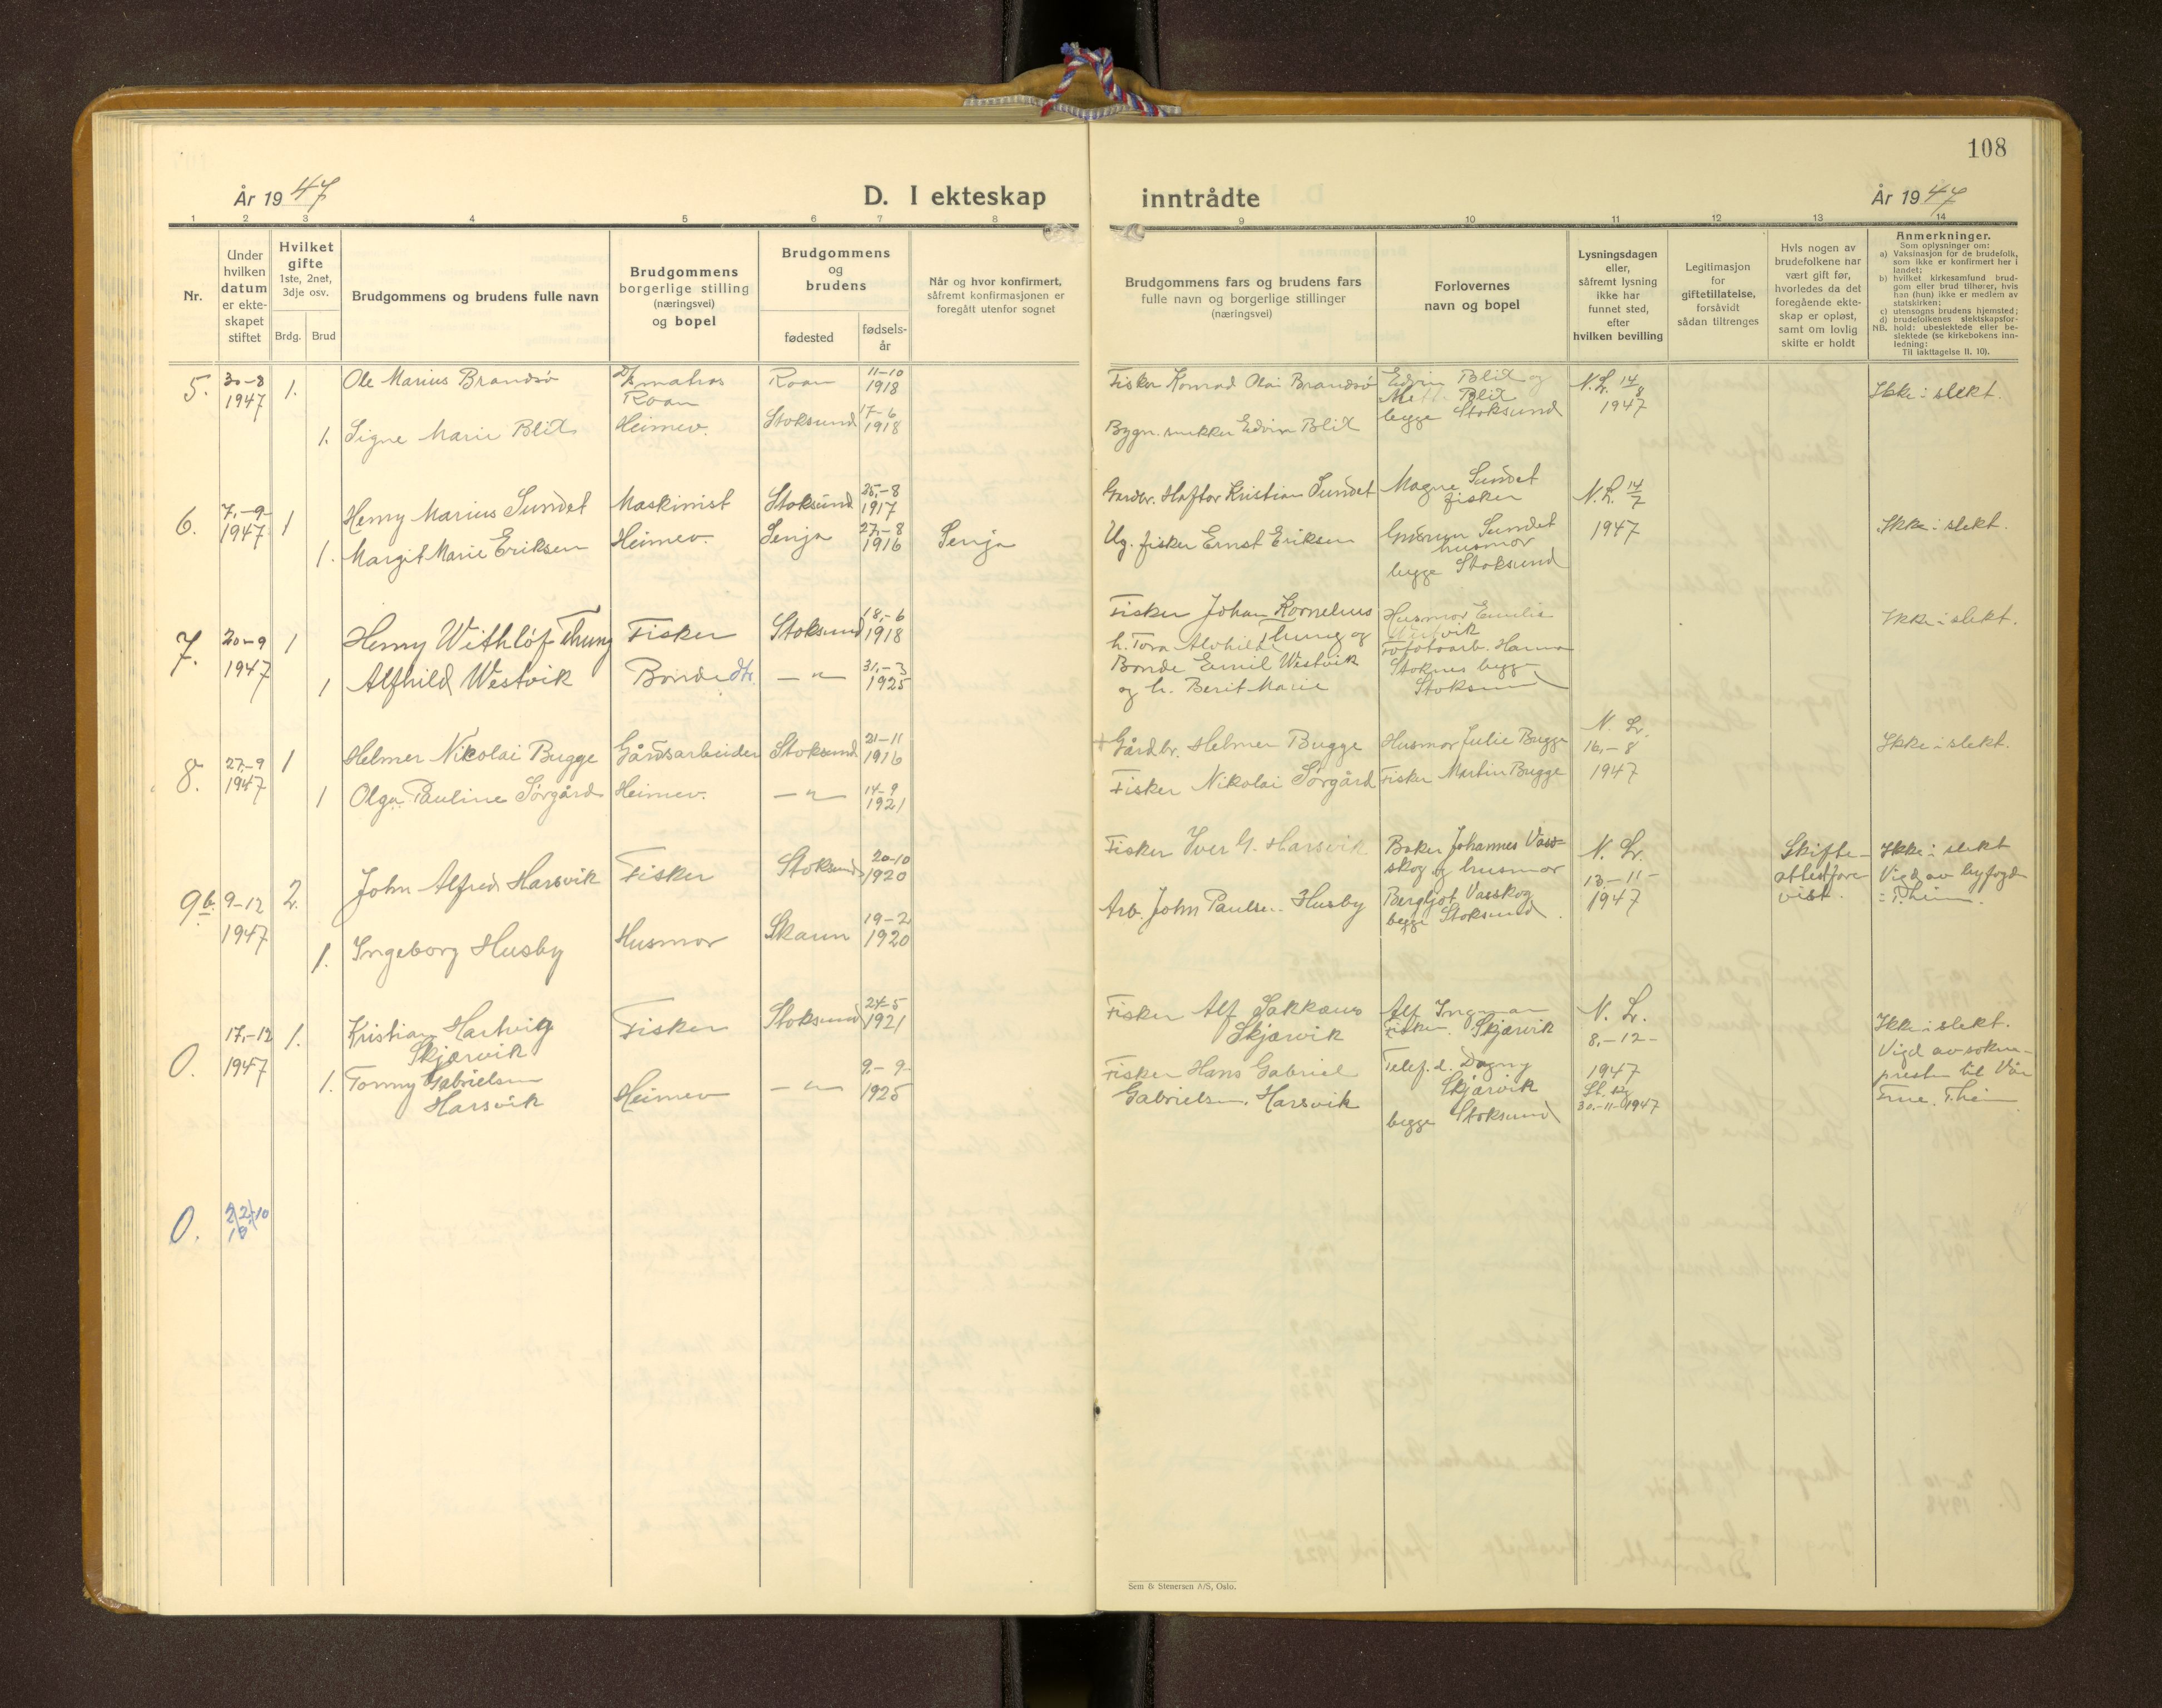 108
År 1947
D. I ekteskap
inntrådte
År 1947
1 2 3 4 5 6 7 8
9 10 11 12 13 14
Nr.
Under
hvilken
datum
er ekte-
skapet
stiftet
Hvilket
gifte
1ste, 2net,
3dje osv.
Brdg. Brud
Brudgommens og brudens fulle navn
Brudgommens
borgerlige stilling
(næringsvei)
og bopel
Brudgommens
og
brudens
fødested
fødsels-
år
Når og hvor konfirmert,
såfremt konfirmasjonen er
foregått utenfor sognet
Brudgommens fars og brudens fars
fulle navn og borgerlige stillinger
(næringsvei)
Forlovernes
navn og bopel
Lysningsdagen
eller,
såfremt lysning
ikke har
funnet sted,
efter
hvilken bevilling
Legitimasjon
for
giftetillatelse,
forsåvidt
sådan tiltrenges
Hvis nogen av
brudefolkene har
vært gift før,
hvorledes da det
foregående ekte-
skap er opløst,
samt om lovlig
skifte er holdt
Anmerkninger.
Som oplysninger om:
a) Vaksinasjon for de brudefolk,
som ikke er konfirmert her i
landet;
b) hvilket kirkesamfund brud-
gom eller brud tilhører, hvis
han (hun) ikke er medlem av
statskirken;
c) utensogns brudens hjemsted;
d) brudefolkenes slektskapsfor-
NB. hold: ubeslektede eller be-
slektede (se kirkebokens inn-
ledning:
Til iakttagelse II. 10).
5.
30-8
1947
1.
Ole Marius Brandsø
matros
Roan
Roan
11-10
1918
Fisker Konrad Olai Brandsø
Edvin Blix og
Blix
begge Stoksund
N. L. 14/8
1947
Ikke i slekt.
1. Signe Marie Blix
Heimev.
Stoksund
17-6
1918
Bygn. snekker Edvin Blix
6.
7.-9-
1947
1
Henry Marius Sundet
Maskinist
Stoksund
25.-8
1917
Gardbr. Haftor Kristian Sundet
Magne Sundet
fisker
N. L. 14/7
1947
Ikke i slekt.
1. Margit Marie Eriksen
Heimev.
Senja
27.-8
1916
Senja
Ug. fisker Ernst Eriksen
Gudrun Sundet
husmor
begge Stoksund
7.
20-9
1947
1
Henry Withlöf Thung
Fisker
Stoksund
18,-6
1918
Fisker Johan Kornelius
Thung og
h. Tora Alvhilde
Husmor Emilie
Westvik
Ikke i slekt.
1 Alfhild Westvik
Bonde dtr.
— " —
31.-3
1925
Bonde Emil Westvik
og h. Berit Marie
Hanna
Stoknes begge
Stoksund
8.
27.-9
1947
1
Helmer Nikolai Bugge
Gårdsarbeider
Stoksund
21-11
1916
+ Gårdbr. Helmer Bugge
Husmor Julie Bugge
N. L.
16,-8
1947
Ikke i slekt.
1 Olga Pauline Sørgård
Heimev.
— " —
14-9
1921
Fisker Nikolai Sørgård
Fisker Martin Bugge
9b.
9-12
1947
2.
John Alfred Harsvik
Fisker
Stoksund
20-10
1920
Fisker Iver G. Harsvik
Baker Johannes Vass-
skog og husmor
Bergljot Vasskog
begge Stoksund
N. L.
13-11-
1947
Skifte-
attest fore-
vist.
Ikke i slekt
Vigd av byfogd
i T.heim.
1. Ingeborg Husby
Husmor
Skaun
19-2
1920
Arb. John Paulsen Husby
0.
17.-12
1947
1.
Kristian Hartvig
Skjærvik
Fisker
Stoksund
24-5
1921
Fisker Alf Sakkæus
Skjærvik
Alf Ingmar
Fisker Skjærvik
N. L.
8,-12-
1947
30.-11-1947
Ikke i slekt.
Vigd av sokne-
presten til Vår
Frue. T.heim
1. Tommy Gabrielsen
Harsvik
Heimev
— " —
9.-9-
1925
Fisker Hans Gabriel
Gabrielsen. Harsvik
Telef. d. Dagny
Skjærvik
begge Stoksund
0.
Sem & Stenersen A/S, Oslo.